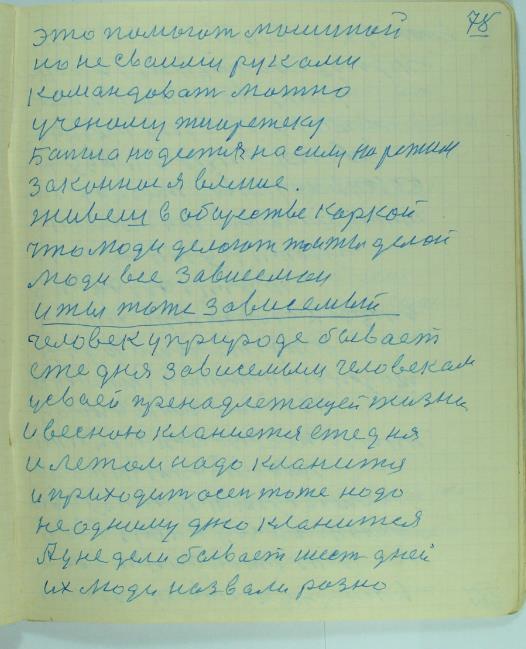 78
это помогат мошиной
но не своими руками
командоват можно
ученому
надеятся на силу на режим
законное явление.
живеш в обществе
что люди делают то и ты делой
люди все зависемои
и ты тоже зависемый
человек у природе бывает
еже дня зависемым человекам
у своей пренадлежащей жизни
и весною кланиется еже дня
и летом надо кланится
и приходит осен тоже надо
не одному дню кланится
А у недели бывает шест дней
их люди назвали разно